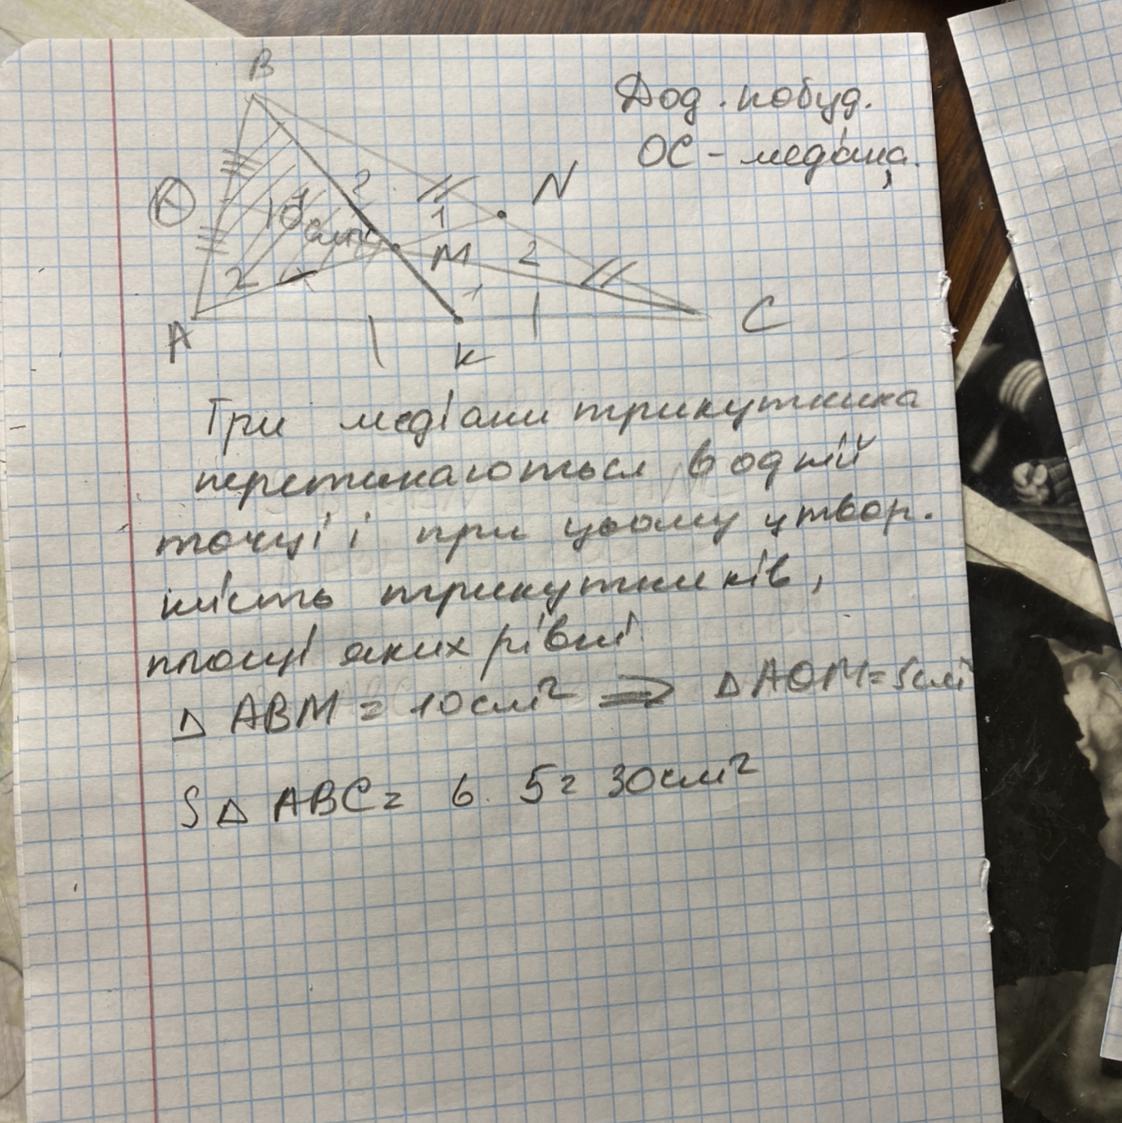 B
Дод. побуд.
OC - медіана.
N
2
1
10 см²
M
2
2
1
A
K
C
Три медіани трикутника
перетинаються в одній
точці і при цьому утвор.
шість трикутників,
площі яких рівні
△ ABM = 10см² ⇒ △ AOM = 5см²
S △ ABC = 6 · 5 = 30см²